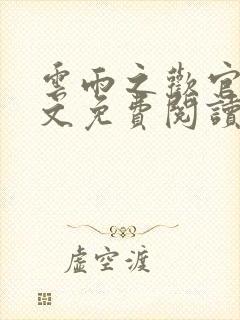 雲雨之歡官
文免費閱讀
虛空渡